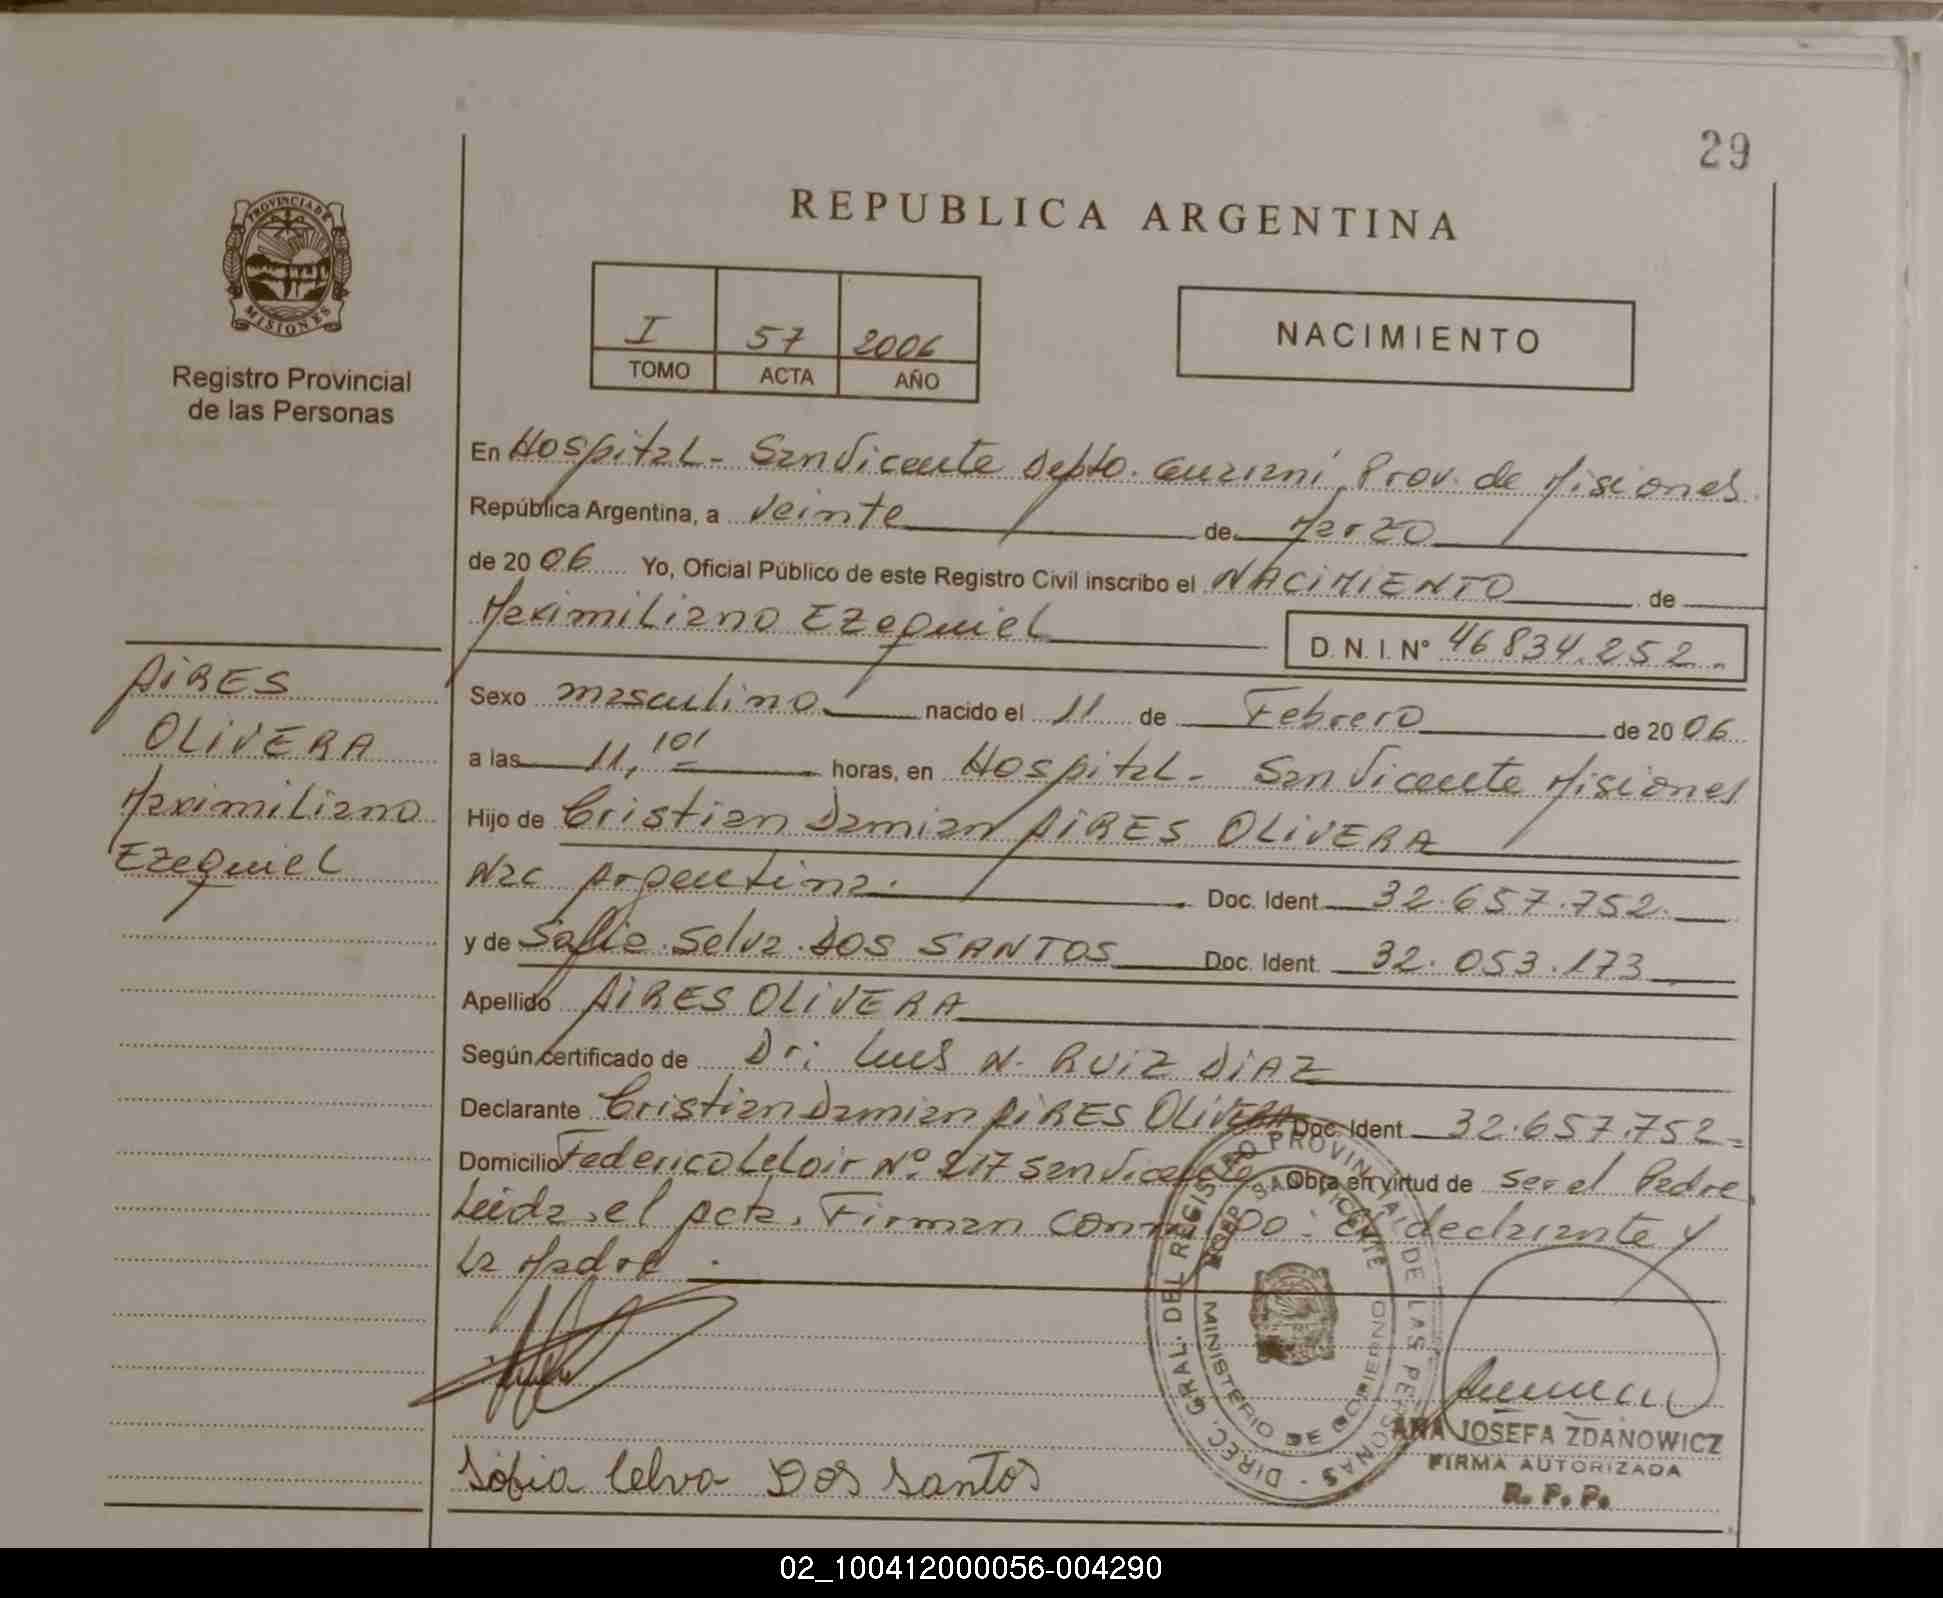 29
PROVINCIA DE
MISIONES
Registro Provincial
de las Personas
REPUBLICA ARGENTINA
I 57 2006
TOMO ACTA AÑO
NACIMIENTO
En Hospital - San Vicente Depto. Guaraní, Prov. de Misiones
República Argentina, a veinte de Marzo
de 2006 Yo, Oficial Público de este Registro Civil inscribo el NACIMIENTO de
Maximiliano Ezequiel D.N.I. Nº 46834.252.-
Sexo masculino nacido el 11 de Febrero de 2006
a las 11,10' horas, en Hospital - San Vicente Misiones
Hijo de Cristian Damian AIRES OLIVERA
Nac Argentina. Doc. Ident 32.657.752.
y de Sofia Selva DOS SANTOS Doc. Ident. 32.053.173
Apellido AIRES OLIVERA
Según certificado de Dr: Luis N. RUIZ DIAZ
Declarante Cristian Damian AIRES OLIVERA Doc. Ident 32.657.752=
Domicilio Federico Leloir Nº 217 San Vicente Obra en virtud de ser el Padre
Leida el acta, Firman conmigo: El declarante y
la Madre.
AIRES
OLIVERA
Maximiliano
Ezequiel
DIREC. GRAL. DEL REGISTRO PROVINCIAL DE LAS PERSONAS -
SAN VICENTE
MINISTERIO DE GOBIERNO
ANA JOSEFA ZDANOWICZ
FIRMA AUTORIZADA
R. P. P.
Sofia Celva Dos Santos
02_100412000056-004290